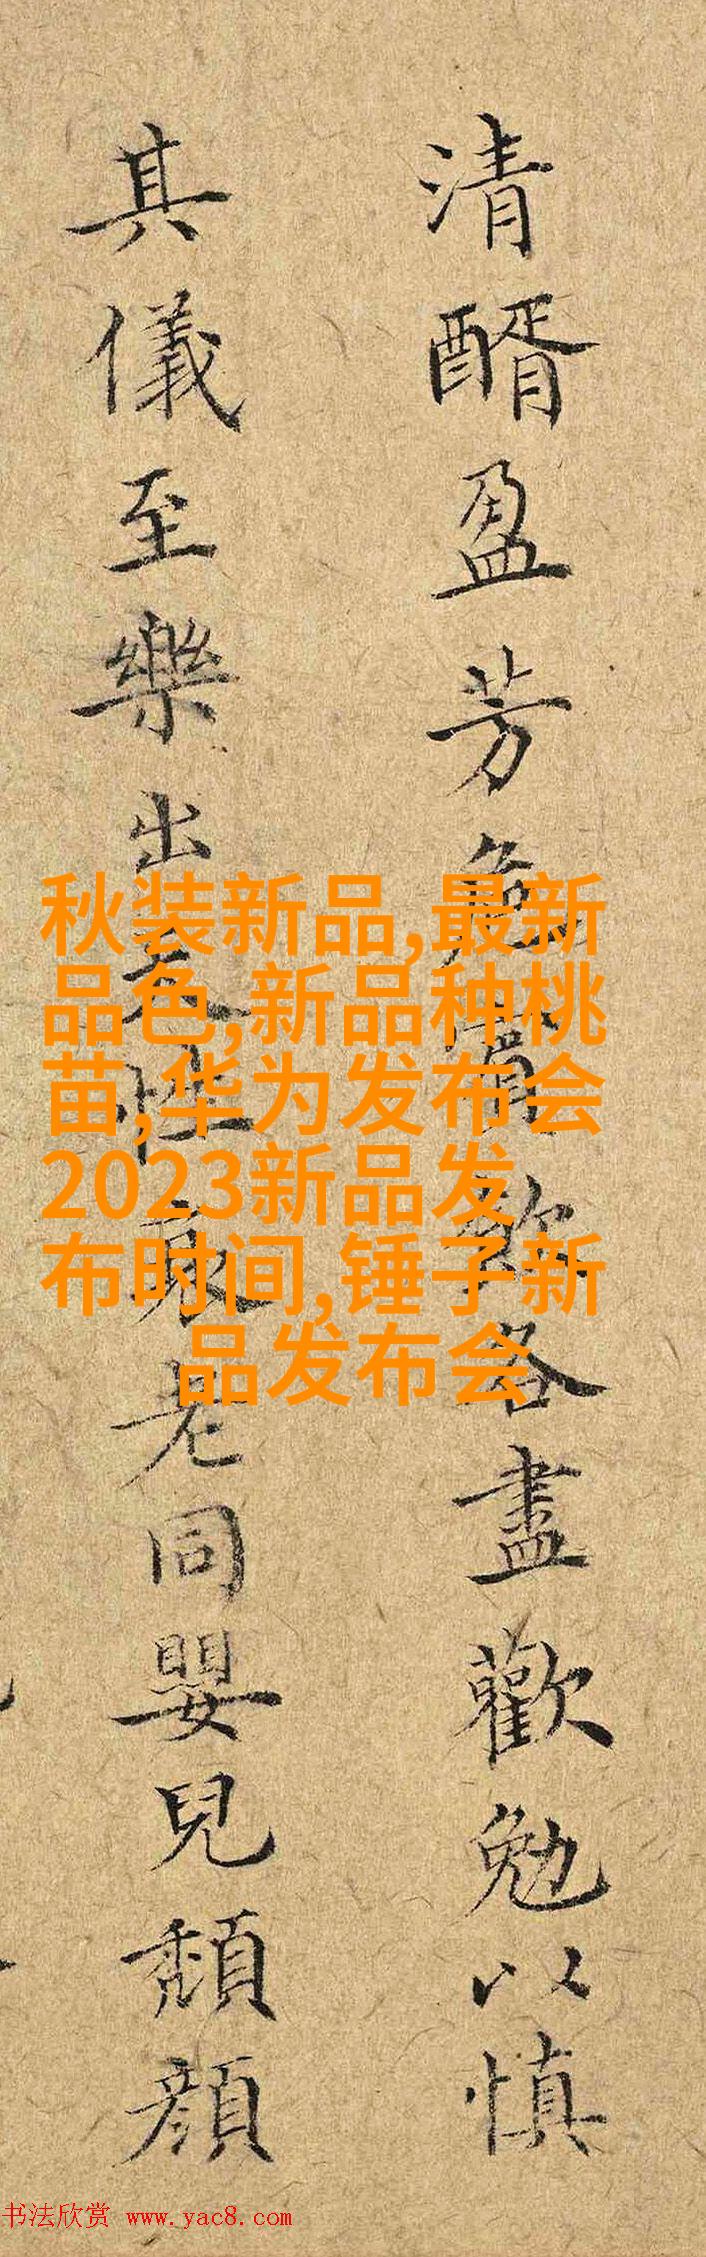 清醑盈芳各盡歡勉以慎
其儀至樂出天性衰老同嬰兒頹顏
秋装新品,最新
品色,新品种桃
苗,华为发布会
2023新品发
布时间,锤子新
品发布会
书法欣赏 www.yac8.com